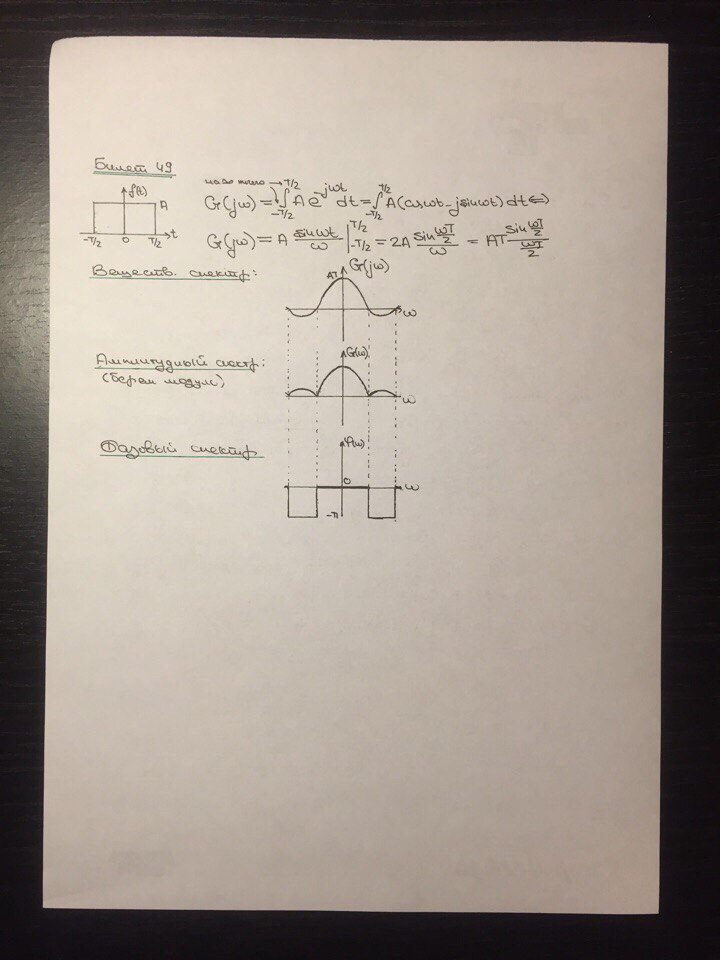 Билет 49
f(t)
A
-T/2 0 T/2 t
G(jω) = ∫_{-T/2}^{T/2} A e^{-jωt} dt = ∫_{-T/2}^{T/2} A(cosωt - jsinωt) dt ⇔
G(jω) = A sinωt/ω |_{-T/2}^{T/2} = 2A sin(ωT/2)/ω = AT sin(ωT/2)/(ωT/2)
Веществ. спектр:
G(jω)
AT
ω
Амплитудный спектр:
(берем модуль)
G(ω)
ω
Фазовый спектр
φ(ω)
0
ω
-π